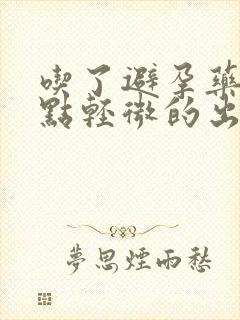 喫了避孕藥
點輕微的出
夢思煙雨愁